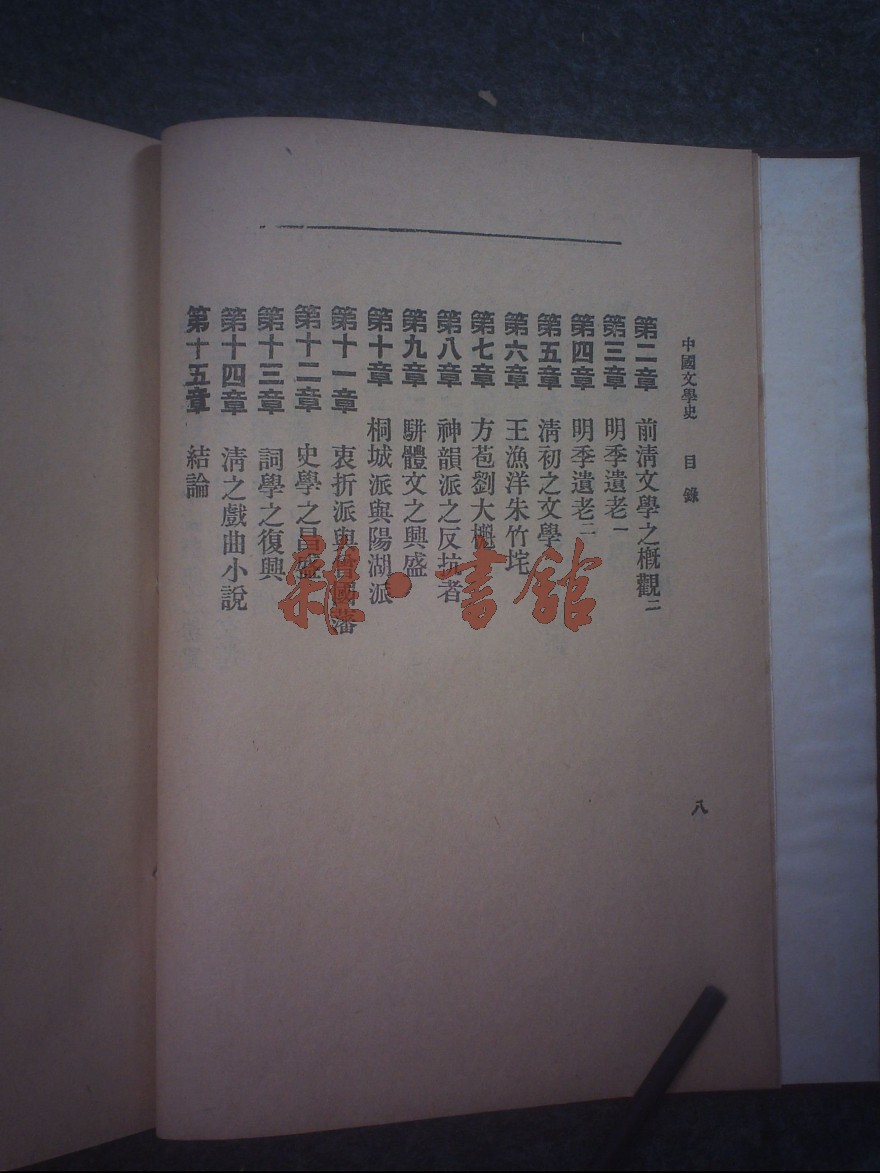 中國文學史 目錄
八
第二章 前清文學之概觀二
第三章 明季遺老一
第四章 明季遺老二
第五章 清初之文學
第六章 王漁洋朱竹垞
第七章 方苞劉大櫆
第八章 神韻派之反抗者
第九章 駢體文之興盛
第十章 桐城派與陽湖派
第十一章 衷折派與曾國藩
第十二章 史學之昌盛
第十三章 詞學之復興
第十四章 清之戲曲小說
第十五章 結論
雜·書館